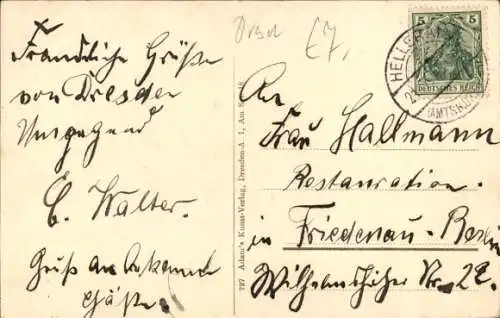 Freundliche Grüße
von Dresden
Umgegend
E. Walter.
Gruß an bekannte
Gäste.
727 Adam's Kunst-Verlag, Dresden-A. 1, Am See
Dresd
£7,
5 5
DEUTSCHES REICH
HELLERAU
(AMTSH
An
Frau Hallmann
Restauration.
in Friedenau-Berlin
Wilhelmshöher Str. 22.